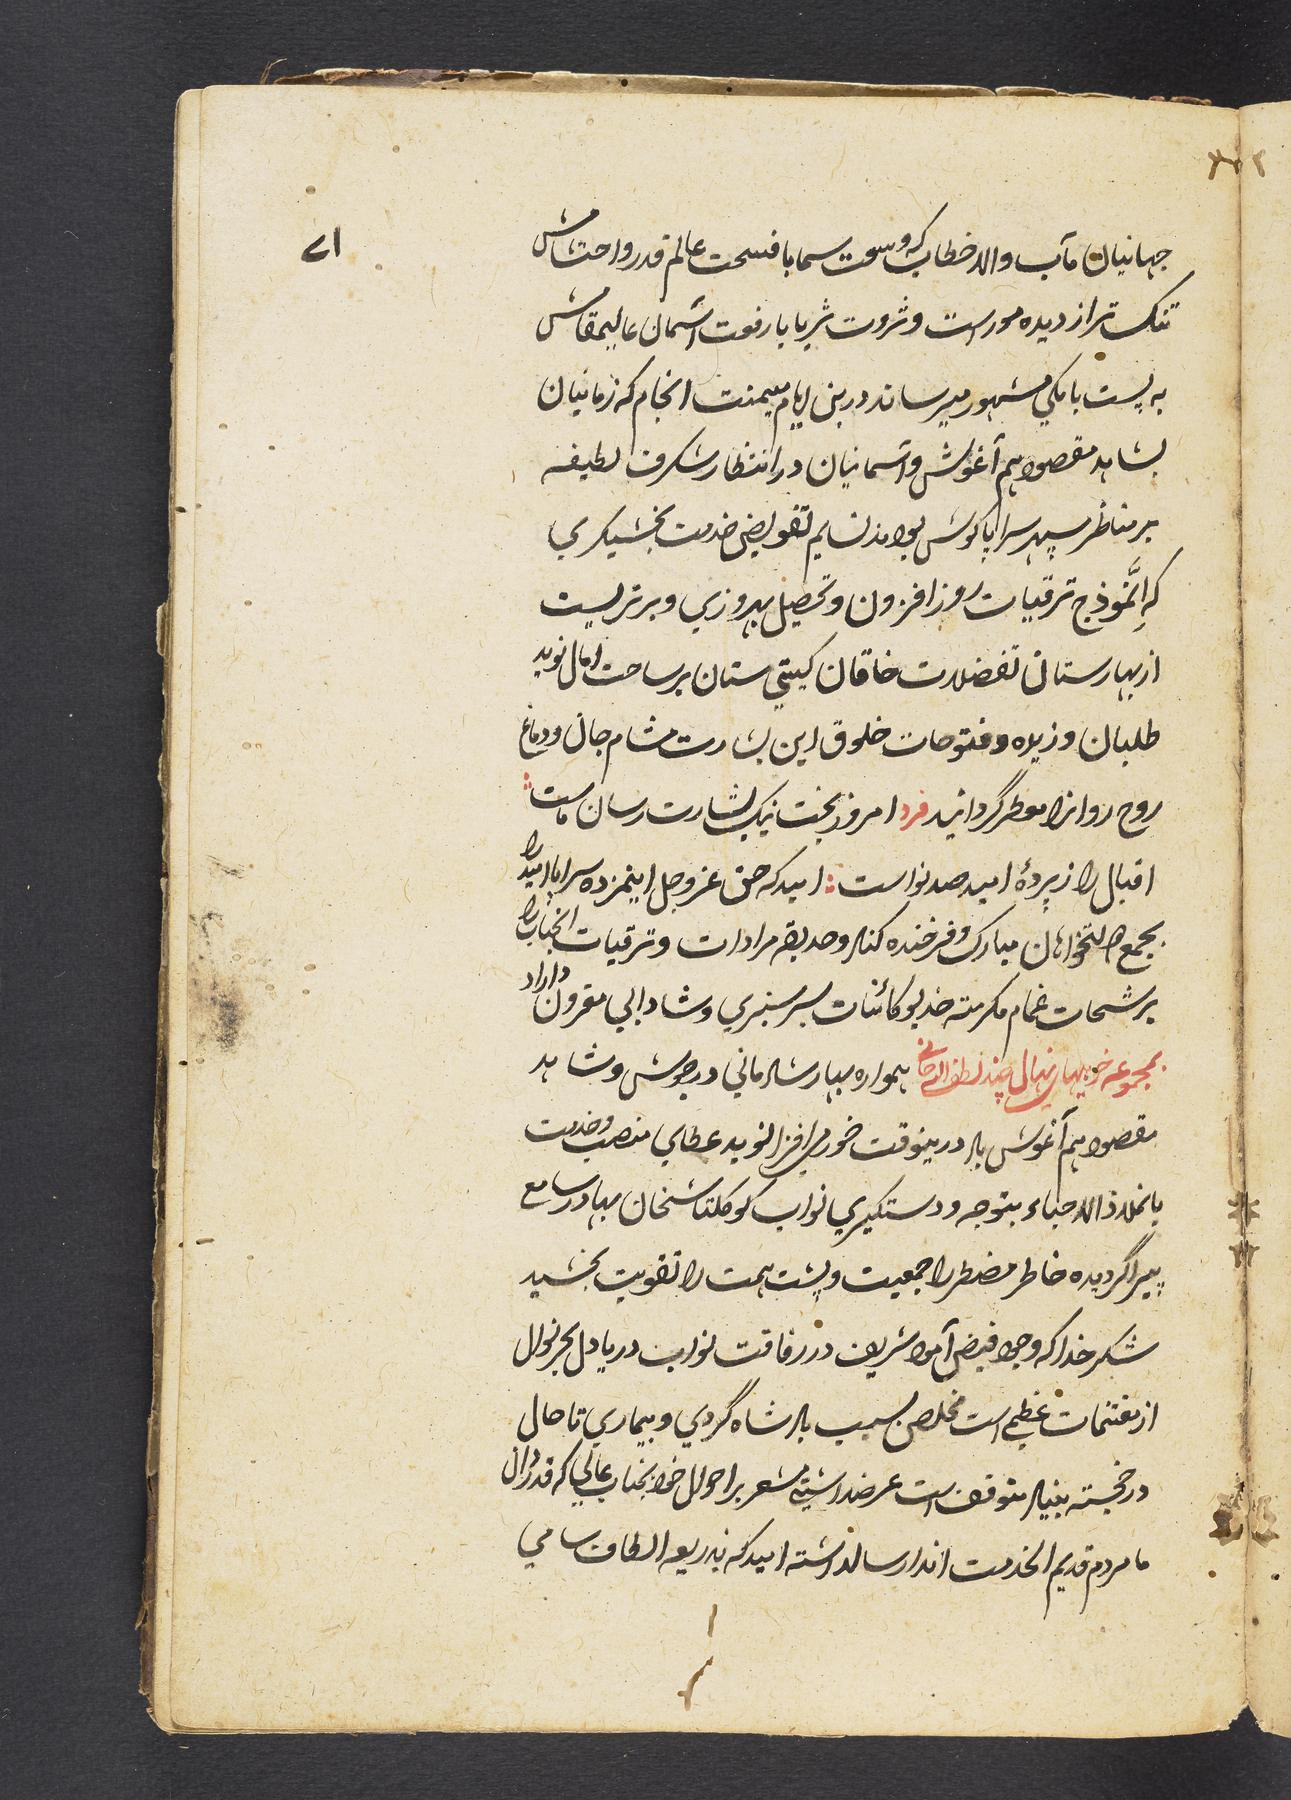 ۷۱
جهانیان مآب والا خطاب که وسعت سما با فسحت عالم قدر و احتشامش
تنک تر از دیده مور است و ثروت ثریا با رفعت آسمان عالیمقامش
به پست پایکی مشهور میرساند درین ایام میمنت انجام که زمانیان
بشاهد مقصود هم آغوش و آسمانیان در انتظار شکرف لطیفه
بر مناظر سپهر سراپا کوش بودند نسایم تفویض خدمت بخشیکری
که اِنَّموذج ترقیات روز افزون و تحصیل بهروزی و برتریست
از بهارستان تفضلات خاقان کیتی ستان بر ساحت آمال نوید
طلبان وزیده و فتوحات خلوق این بشارت مشام جان و دماغ
روح روانرا معطر گردانید فرد امروز بخت نیک بشارت رسان ماست
اقبال را ز پردهٔ امید صد نواست امید که حق عز و جل اینمژده سراپا امید را
بجمع دولتخواهان مبارک و فرخنده کناد و حدیقه مرادات و ترقیات آنجناب را
برشحات غمام مکرمت خدیو کائنات بسرسبزی و شادابی مقرون داراد
بمجموعه خوبیهای نهال چند لطف الله خانی همواره بهار شادمانی در جوش و شاهد
مقصود هم آغوش باد درینوقت خورمی افزا نوید عطای منصب و خدمت
بانملاذ الاحباء بتوجه و دستکیری نواب کوکلتاشخان بهادر سامع
پیرا گردیده خاطر مضطر را جمعیت و پشت همت را تقویت بخشید
شکر خدا که وجود فیض آمود شریف در رفاقت نواب دریا دل بحر نوال
از مغتنمات عظیم است مخلص بسبب باد شاه گردی و بیماری تا حال
در خجسته بنیاد متوقف است عرضداشتی مشعر بر احوال خود بجناب عالی که قدردان
ما مردم قدیم الخدمت اند ارسالداشته امید که بذریعه الطاف سامی